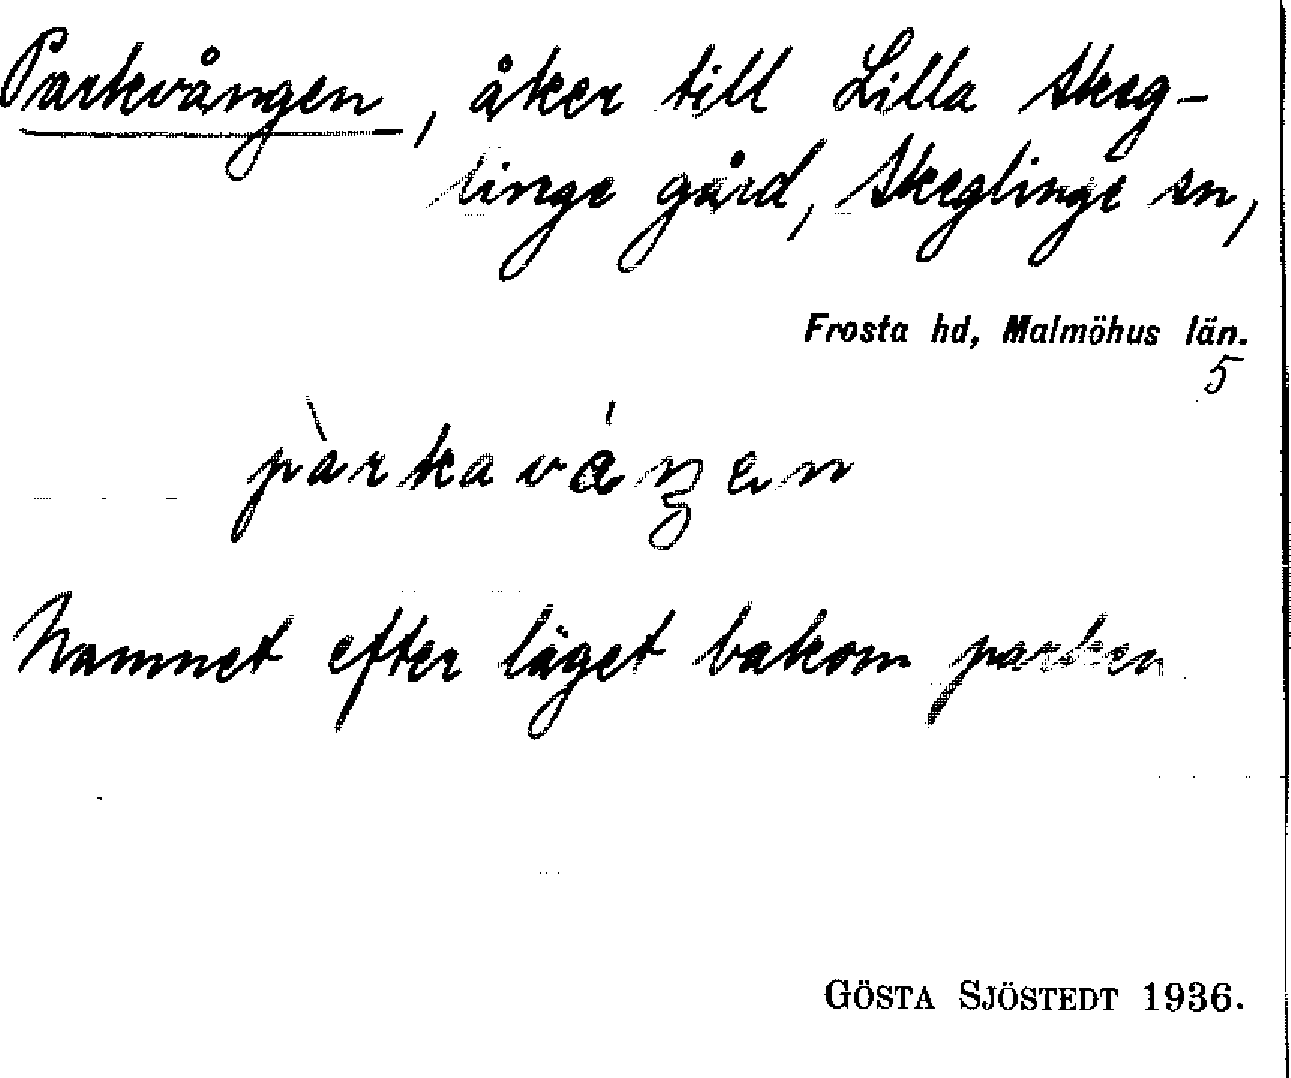 Parkvången, åker till Lilla Skeg-
linge gård, Skeglinge sn,
Frosta hd, Malmöhus län.
5
pàrkaváŋen
Namnet efter läget bakom parken
GÖSTA SJÖSTEDT 1936.